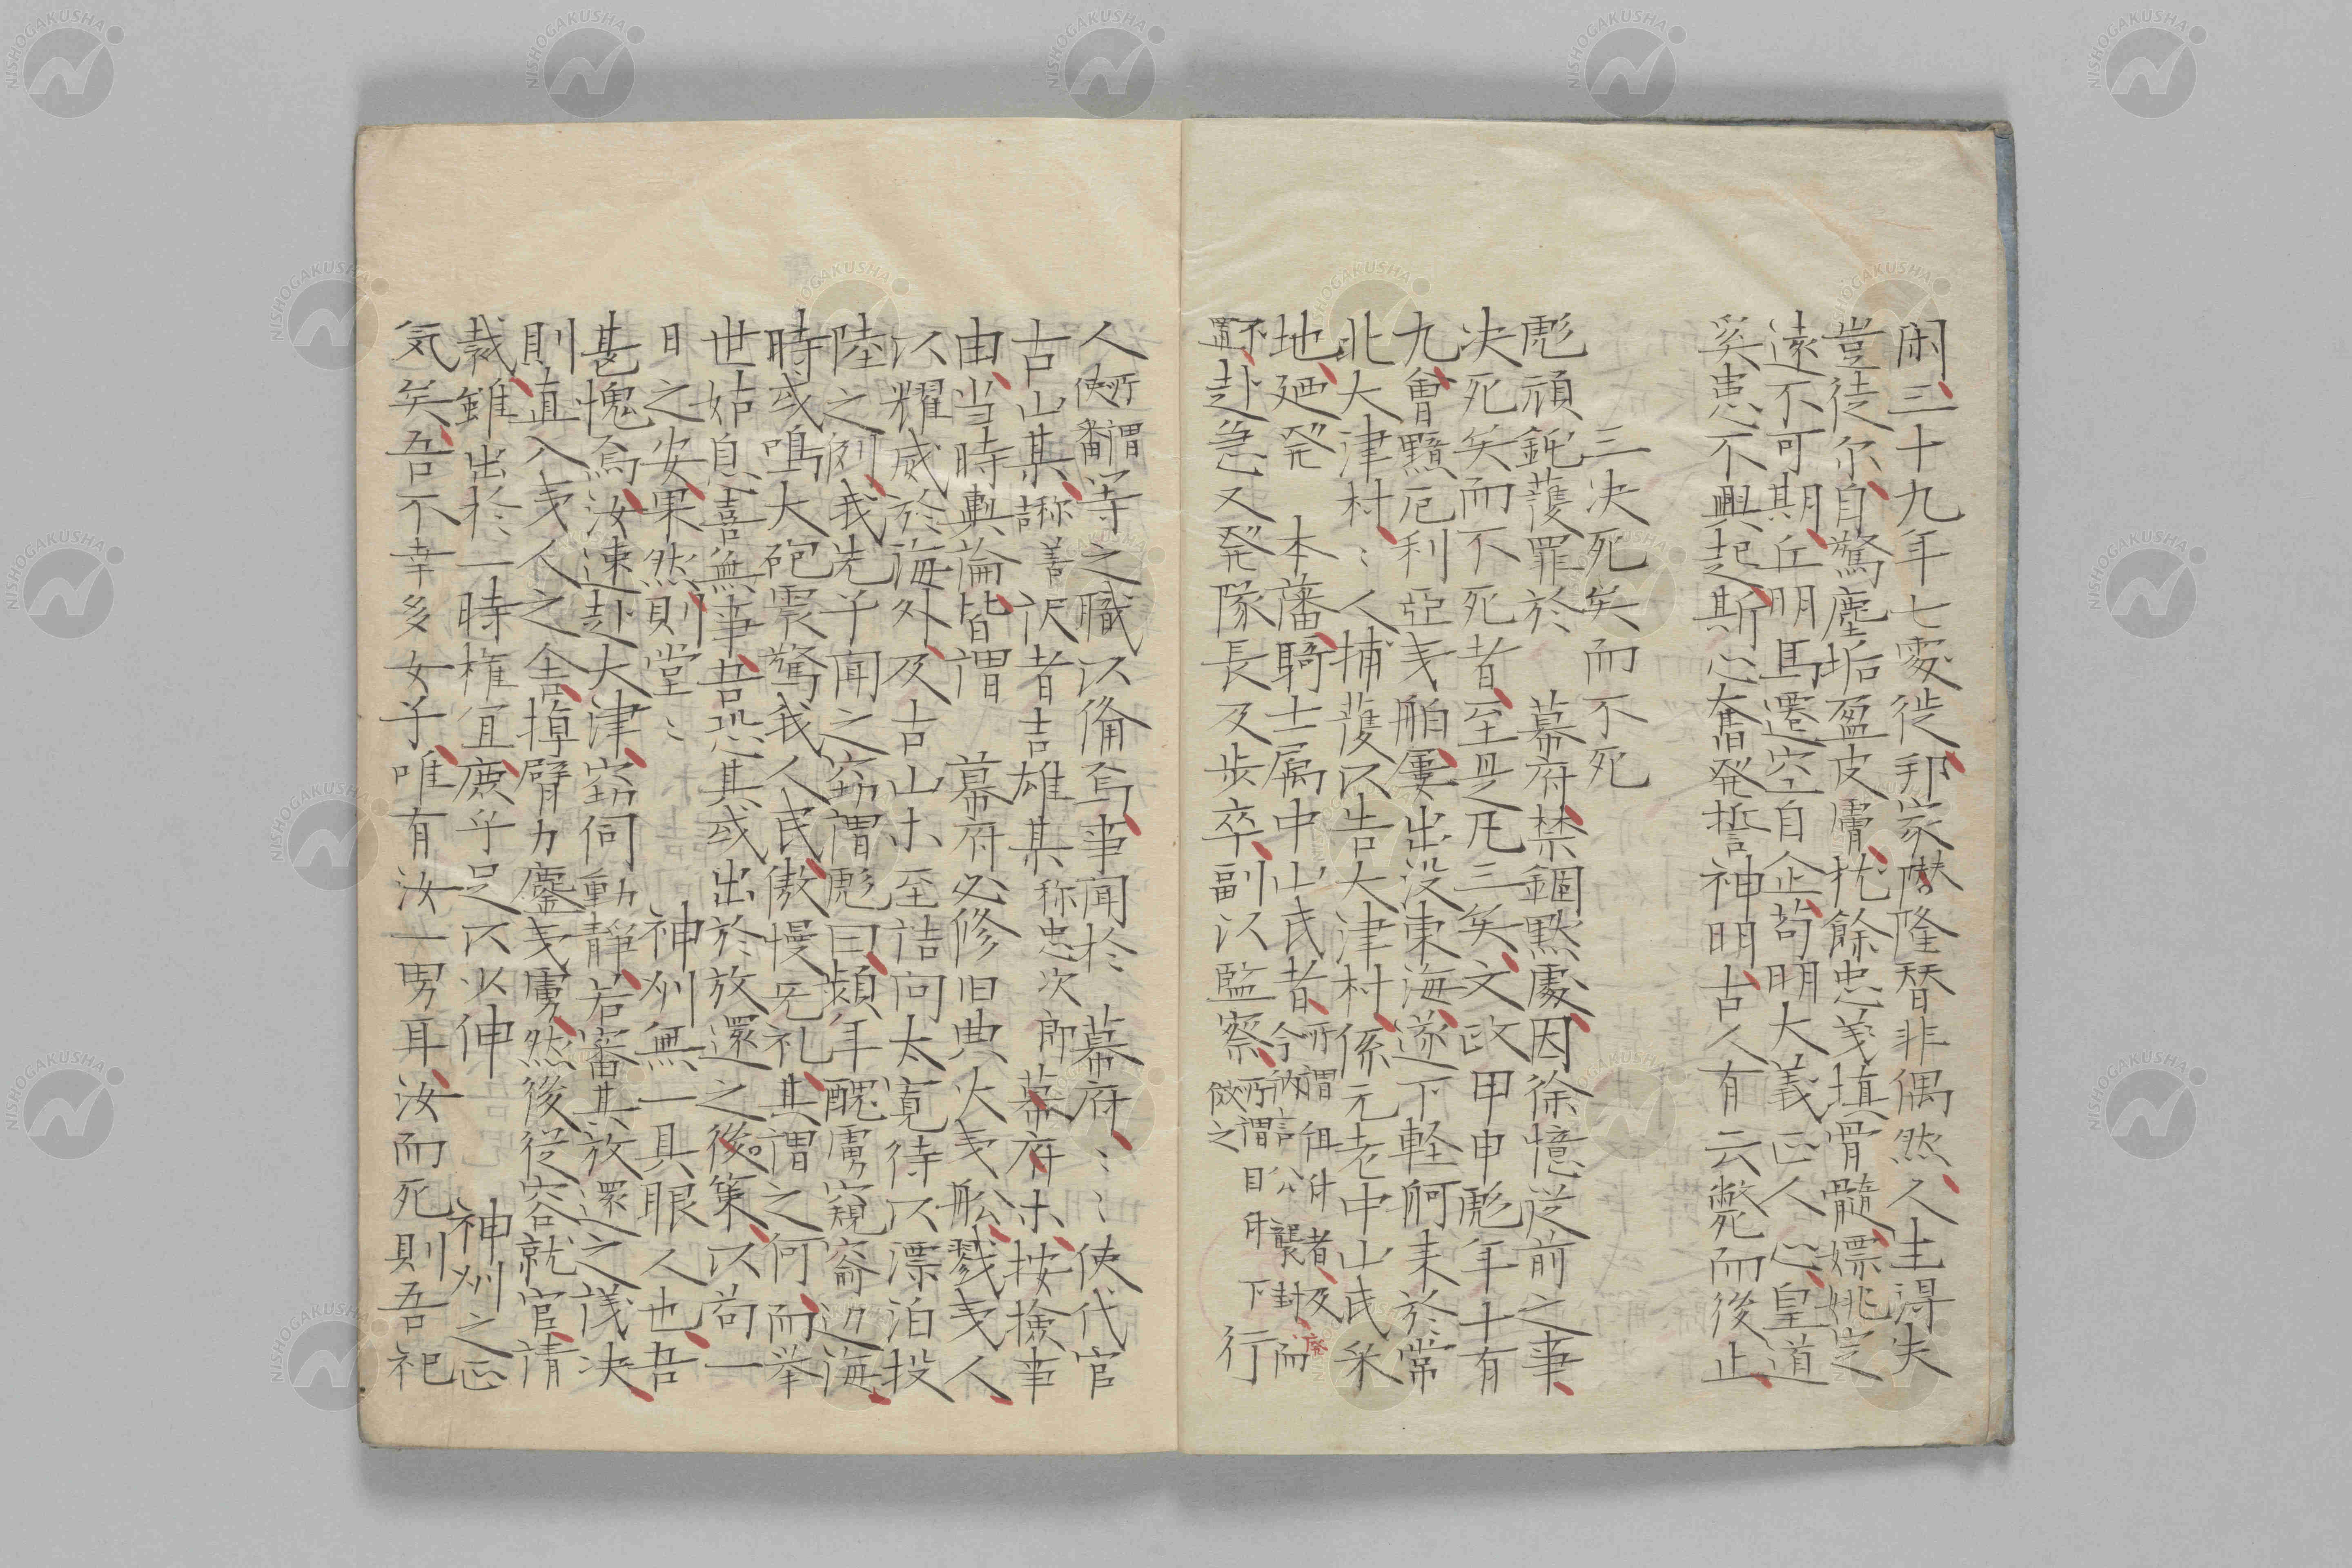 閑三十九年七處徙邦家隆替非偶然人生得失
豈徒尓自驚塵垢盈皮膚猶餘忠義塡骨髓嫖姚定
遠不可期丘明馬遷空自企苟明大義正人心皇道
奚患不興起斯心奮発誓神明古人有云斃而後止
三决死矣而不死
彪頑鈍獲罪於 幕府禁錮黙處因徐憶從前之事
决死矣而不死者至是凡三矣文政甲申彪年十有
九曾黠厄利亞夷舶屢出没東海遂下軽舸来於常
北大津村〻人捕獲以告大津村係元老中山氏采
地廼発 本藩騎士属中山氏者所謂徂付者及今所謂公襲封而廃
不置赴急又発隊長及歩卒副以監察所謂目付下欽之行
人所謂使番等之職以備焉事聞於 幕府〻〻使代官
古山某称善吉訳者吉雄某称忠次郎幕府未按檢事
由当時輿論皆謂 幕府必修旧典火夷舩戮夷人
以耀威於海外及古山木至詰問太寛待以漂泊投
陸之例我先子聞之窃謂彪曰頻年醜虜窺窬辺海
時或鳴大砲震驚我人民傲慢无礼其謂之何而挙
世姑息喜無事吾恐其或出於放還之後策以苟一
日之安果然則堂〻 神州無一具眼人也吾
甚愧焉汝速赴大津窃伺動静若審其放還之議决
則直入夷人之舎揮臂力鏖夷虜然後従容就官請
裁雖出於一時権宜庶乎足以少伸 神州之正
気矣吾不幸多女子唯有汝一男耳汝而死則吾祀
NISHOGAKUSHA